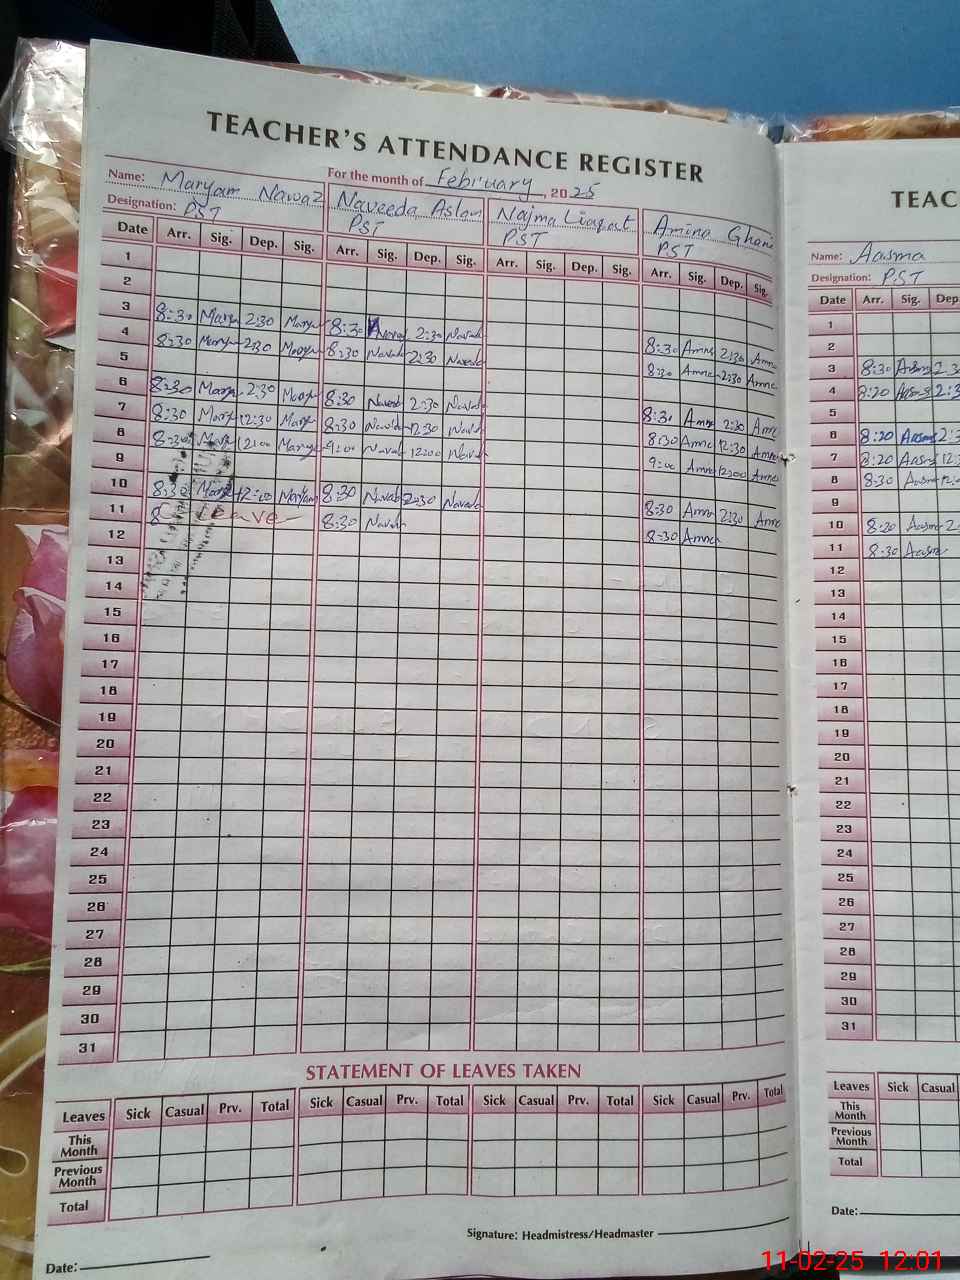 TEACHER'S ATTENDANCE REGISTER
For the month of February, 2025
Name: Maryam Nawaz Naveeda Aslam Najma Liaqat Amina Ghani
Designation: PST PST PST PST
Date Arr. Sig. Dep. Sig. Arr. Sig. Dep. Sig. Arr. Sig. Dep. Sig. Arr. Sig. Dep. Sig.
1
2
3 8:30 Mary 2:30 Mary 8:30 Naved 2:30 Naved 8:30 Amna 2:30 Amna
4 8:30 Mary 2:30 Mary 8:30 Naved 2:30 Naved 8:30 Amna 2:30 Amna
5
6 8:30 Mary 2:30 Mary 8:30 Naved 2:30 Naved 8:30 Amna 2:30 Amna
7 8:30 Mary 12:30 Mary 8:30 Naved 12:30 Naved 8:30 Amna 12:30 Amna
8 8:30 Mary 12:00 Mary 9:00 Naved 12:00 Naved 9:00 Amna 12:00 Amna
9
10 8:30 Mary 12:00 Maryam 8:30 Naved 2:30 Naved 8:30 Amna 2:30 Amna
11 8 Leave 8:30 Naved 8:30 Amna
12
13
14
15
16
17
18
19
20
21
22
23
24
25
26
27
28
29
30
31
STATEMENT OF LEAVES TAKEN
Leaves Sick Casual Prv. Total Sick Casual Prv. Total Sick Casual Prv. Total Sick Casual Prv. Total
This
Month
Previous
Month
Total
Signature: Headmistress/Headmaster
Date:
TEAC
Name: Aasma
Designation: PST
Date Arr. Sig. Dep
1
2
3 8:30 Aasma 2:3
4 8:20 Aasma 2:3
5
6 8:20 Aasma 2:3
7 8:20 Aasma 12:
8 8:30 Aasma 12:
9
10 8:20 Aasma 2:
11 8:30 Aasma
12
13
14
15
16
17
18
19
20
21
22
23
24
25
26
27
28
29
30
31
Leaves Sick Casual
This
Month
Previous
Month
Total
Date:
11-02-25 12:01